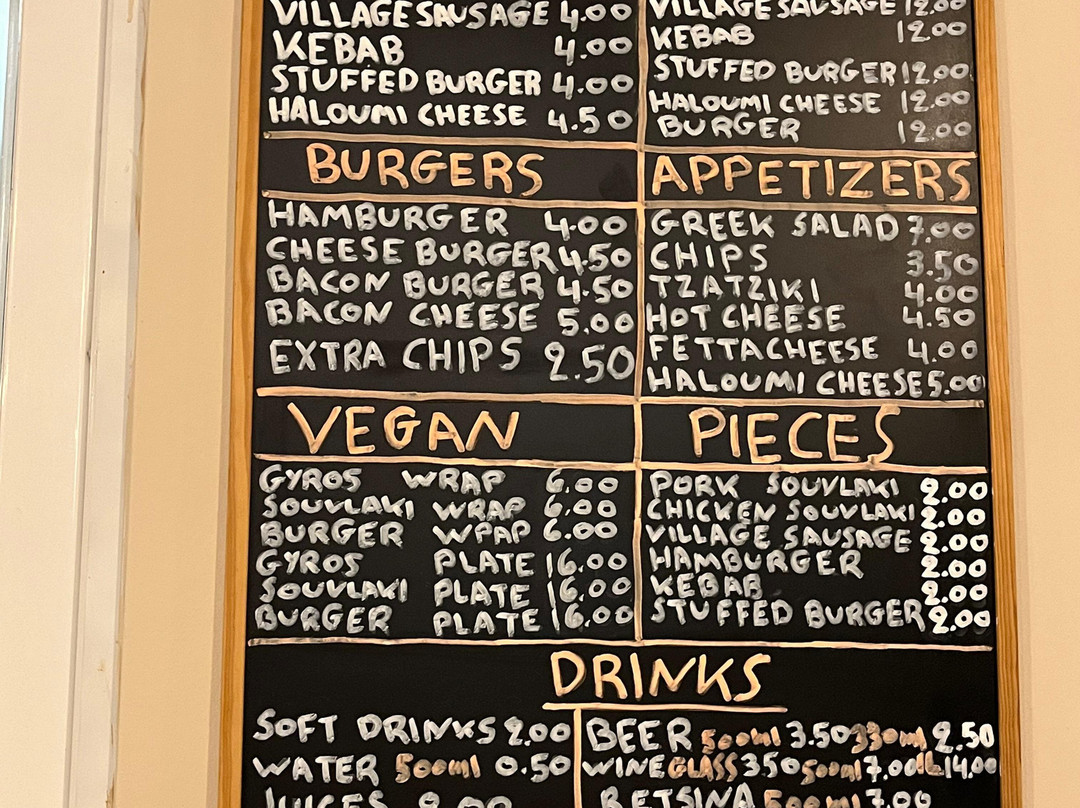 VILLAGE SAUSAGE 4.00
KEBAB 4.00
STUFFED BURGER 4.00
HALOUMI CHEESE 4.50
VILLAGE SAUSAGE 12.00
KEBAB 12.00
STUFFED BURGER 12.00
HALOUMI CHEESE 12.00
BURGER 12.00
BURGERS
HAMBURGER 4.00
CHEESE BURGER 4.50
BACON BURGER 4.50
BACON CHEESE 5.00
EXTRA CHIPS 2.50
APPETIZERS
GREEK SALAD 7.00
CHIPS 3.50
TZATZIKI 4.00
HOT CHEESE 4.50
FETTACHEESE 4.00
HALOUMI CHEESE 5.00
VEGAN
GYROS WRAP 6.00
SOUVLAKI WRAP 6.00
BURGER WPAP 6.00
GYROS PLATE 16.00
SOUVLAKI PLATE 16.00
BURGER PLATE 16.00
PIECES
PORK SOUVLAKI 2.00
CHICKEN SOUVLAKI 2.00
VILLAGE SAUSAGE 2.00
HAMBURGER 2.00
KEBAB 2.00
STUFFED BURGER 2.00
DRINKS
SOFT DRINKS 2.00
WATER 500ml 0.50
JUICES 2.00
BEER 500ml 3.50 330ml 2.50
WINE GLASS 350 500ml 7.00 1L 14.00
RETSINA 500ml 7.00